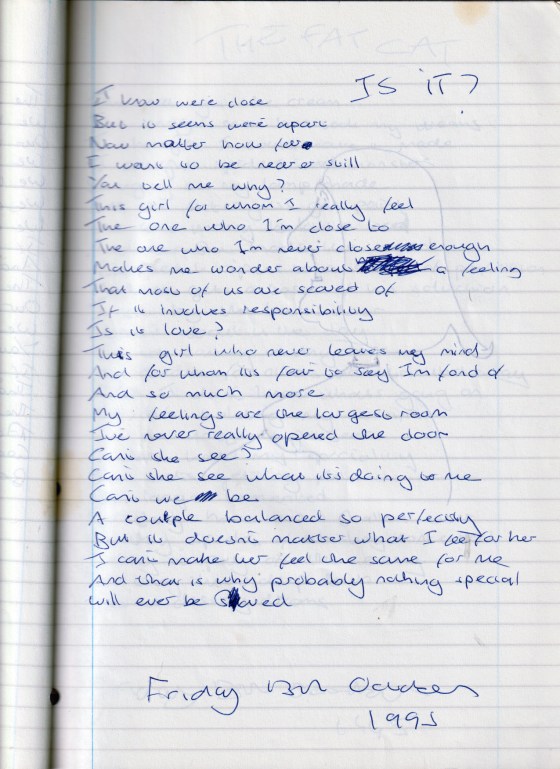 THE FAT CAT
IS IT?
I know were close
But it seems were apart
Now matter how far
I want to be nearer still
You tell me why?
This girl for whom I really feel
The one who I'm close to
The one who I'm never close enough
Makes me wonder about a feeling
That most of us are scared of
If it involves responsibility
Is it love?
This girl who never leaves my mind
And for whom its fair to say I'm fond of
And so much more
My feelings are the largest room
I've never really opened the door
Can't she see?
Can't she see what it's doing to me
Can't we be
A couple balanced so perfectly
But it doesn't matter what I feel for her
I can't make her feel the same for me
And that is why probably nothing special
will ever be saved
Friday 13th October
1995